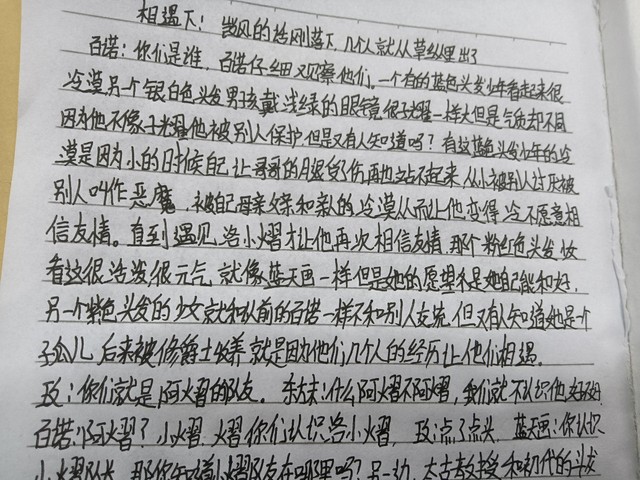 相遇下：微风的拾刚落下，几个人就从草纵里出了
百诺：你们是谁，百诺仔细又观察他们。一个有的蓝色头发少年看起来很
冷漠另个银白色头发男孩戴浅绿的眼镜很子耀一样大但是气质却不同
因为他不像子光耀他被别人保护，但是又有人知道吗？有这蓝色头发少年的冷
漠是因为小的时候自己让哥哥的月退受了伤再也站不起来，从小被别人讨厌被
别人叫作恶魔，被自己母亲父亲和亲人的冷漠从而让他变得冷不愿意相
信友情。直到遇见洛小熠才让他再次相信友情，那个粉红色头发女
看这很活泼很元气，就像蓝天画一样但是她的愿望不是她自己能和好，
另一个紫色头发的少女就和以前的百诺一样不和别人交流，但又有人知道她是个
子瓜儿后来被修爵士收养就是因为他们几个人的经历让他们相遇。
：你们就是阿熠的队友。东方末：什么阿熠不阿熠，我们就不认识他
百诺：阿熠？小熠，熠你们认识洛小熠，：点了点头，蓝天画：你认识
小熠队长，那你知道小熠队友在哪里吗？另一边，太古教授和初代的斗龙